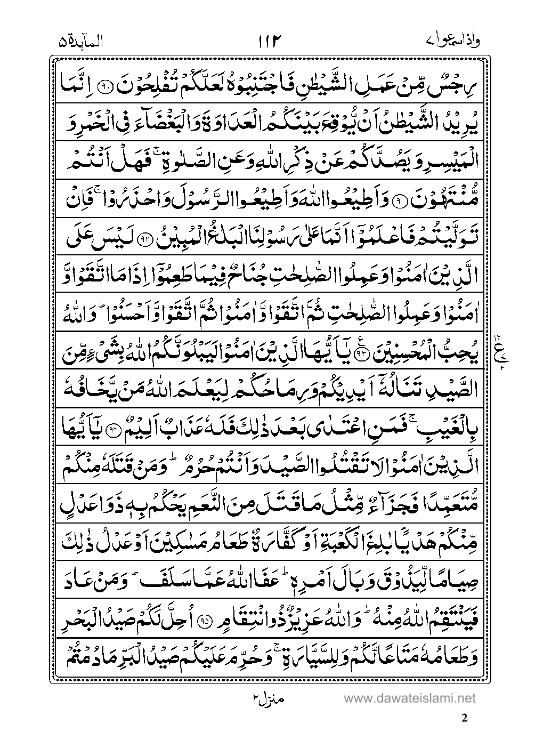 المآئدة ۵ ۱۱۲ واذاسمعوا ۷
رِجْسٌ مِّنْ عَمَلِ الشَّيْطٰنِ فَاجْتَنِبُوْهُ لَعَلَّكُمْ تُفْلِحُوْنَ ﴿۹۰﴾ اِنَّمَا
يُرِيْدُ الشَّيْطٰنُ اَنْ يُّوْقِعَ بَيْنَكُمُ الْعَدَاوَةَ وَالْبَغْضَآءَ فِى الْخَمْرِ وَ
الْمَيْسِرِ وَيَصُدَّكُمْ عَنْ ذِكْرِ اللّٰهِ وَعَنِ الصَّلٰوةِ ۚ فَهَلْ اَنْتُمْ
مُّنْتَهُوْنَ ﴿۹۱﴾ وَاَطِيْعُوا اللّٰهَ وَاَطِيْعُوا الرَّسُوْلَ وَاحْذَرُوْا ۚ فَاِنْ
تَوَلَّيْتُمْ فَاعْلَمُوْۤا اَنَّمَا عَلٰى رَسُوْلِنَا الْبَلٰغُ الْمُبِيْنُ ﴿۹۲﴾ لَيْسَ عَلَى
الَّذِيْنَ اٰمَنُوْا وَعَمِلُوا الصّٰلِحٰتِ جُنَاحٌ فِيْمَا طَعِمُوْۤا اِذَا مَا اتَّقَوْا وَّ
اٰمَنُوْا وَعَمِلُوا الصّٰلِحٰتِ ثُمَّ اتَّقَوْا وَّاٰمَنُوْا ثُمَّ اتَّقَوْا وَّاَحْسَنُوْا ؕ وَاللّٰهُ
يُحِبُّ الْمُحْسِنِيْنَ ﴿۹۳﴾ يٰۤاَيُّهَا الَّذِيْنَ اٰمَنُوْا لَيَبْلُوَنَّكُمُ اللّٰهُ بِشَىْءٍ مِّنَ
الصَّيْدِ تَنَالُهٗۤ اَيْدِيْكُمْ وَرِمَاحُكُمْ لِيَعْلَمَ اللّٰهُ مَنْ يَّخَافُهٗ
بِالْغَيْبِ ۚ فَمَنِ اعْتَدٰى بَعْدَ ذٰلِكَ فَلَهٗ عَذَابٌ اَلِيْمٌ ﴿۹۴﴾ يٰۤاَيُّهَا
الَّذِيْنَ اٰمَنُوْا لَا تَقْتُلُوا الصَّيْدَ وَاَنْتُمْ حُرُمٌ ؕ وَمَنْ قَتَلَهٗ مِنْكُمْ
مُّتَعَمِّدًا فَجَزَآءٌ مِّثْلُ مَا قَتَلَ مِنَ النَّعَمِ يَحْكُمُ بِهٖ ذَوَا عَدْلٍ
مِّنْكُمْ هَدْيًۢا بٰلِغَ الْكَعْبَةِ اَوْ كَفَّارَةٌ طَعَامُ مَسٰكِيْنَ اَوْ عَدْلُ ذٰلِكَ
صِيَامًا لِّيَذُوْقَ وَبَالَ اَمْرِهٖ ؕ عَفَا اللّٰهُ عَمَّا سَلَفَ ؕ وَمَنْ عَادَ
فَيَنْتَقِمُ اللّٰهُ مِنْهُ ؕ وَاللّٰهُ عَزِيْزٌ ذُو انْتِقَامٍ ﴿۹۵﴾ اُحِلَّ لَكُمْ صَيْدُ الْبَحْرِ
وَطَعَامُهٗ مَتَاعًا لَّكُمْ وَلِلسَّيَّارَةِ ۚ وَحُرِّمَ عَلَيْكُمْ صَيْدُ الْبَرِّ مَا دُمْتُمْ
منزل ۲
www.dawateislami.net
2